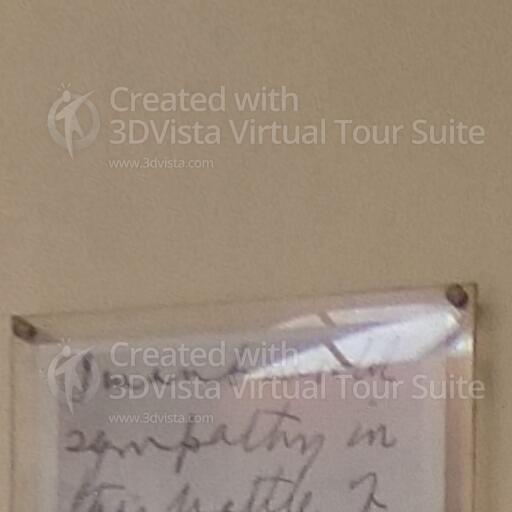 Created with
3DVista Virtual Tour Suite
www.3dvista.com
Created with
3DVista Virtual Tour Suite
www.3dvista.com
sympathy in
this battle I